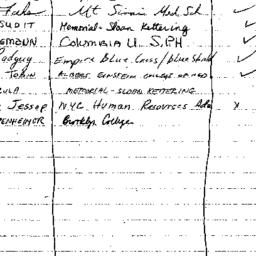 Mt Sinai Med Sch
SUDIT Memorial-Sloan Kettering
COLUMBIA U. SPH
Empire Blue Cross/blue shield
ALBERT EINSTEIN COLLEGE OF MED
MEMORIAL-SLOAN KETTERING
Jessop N.Y.C. Human Resources Adm x
Brooklyn College